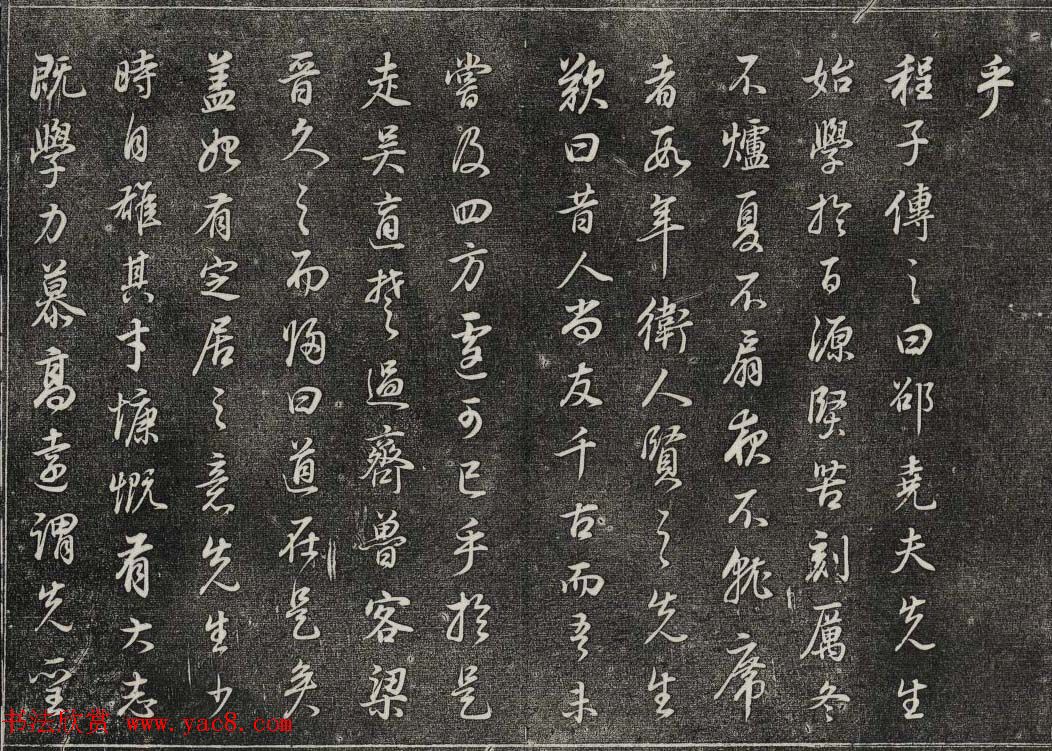 乎
程子傳之曰邵堯夫先生
始學於百源堅苦刻厲冬
不爐夏不扇夜不就席
者數年衛人賢之先生
歎曰昔人尚友千古而吾未
嘗及四方遽可已乎於是
走吳適楚過齊魯客梁
晉久之而歸曰道在是矣
蓋始有定居之意先生少
時自雄其才慷慨有大志
既學力慕高遠謂先聖
书法欣赏 www.yac8.com